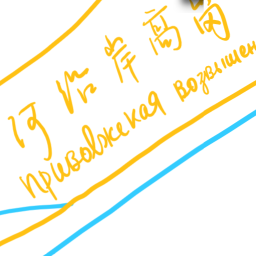 河沿岸高
приволжская возвышен